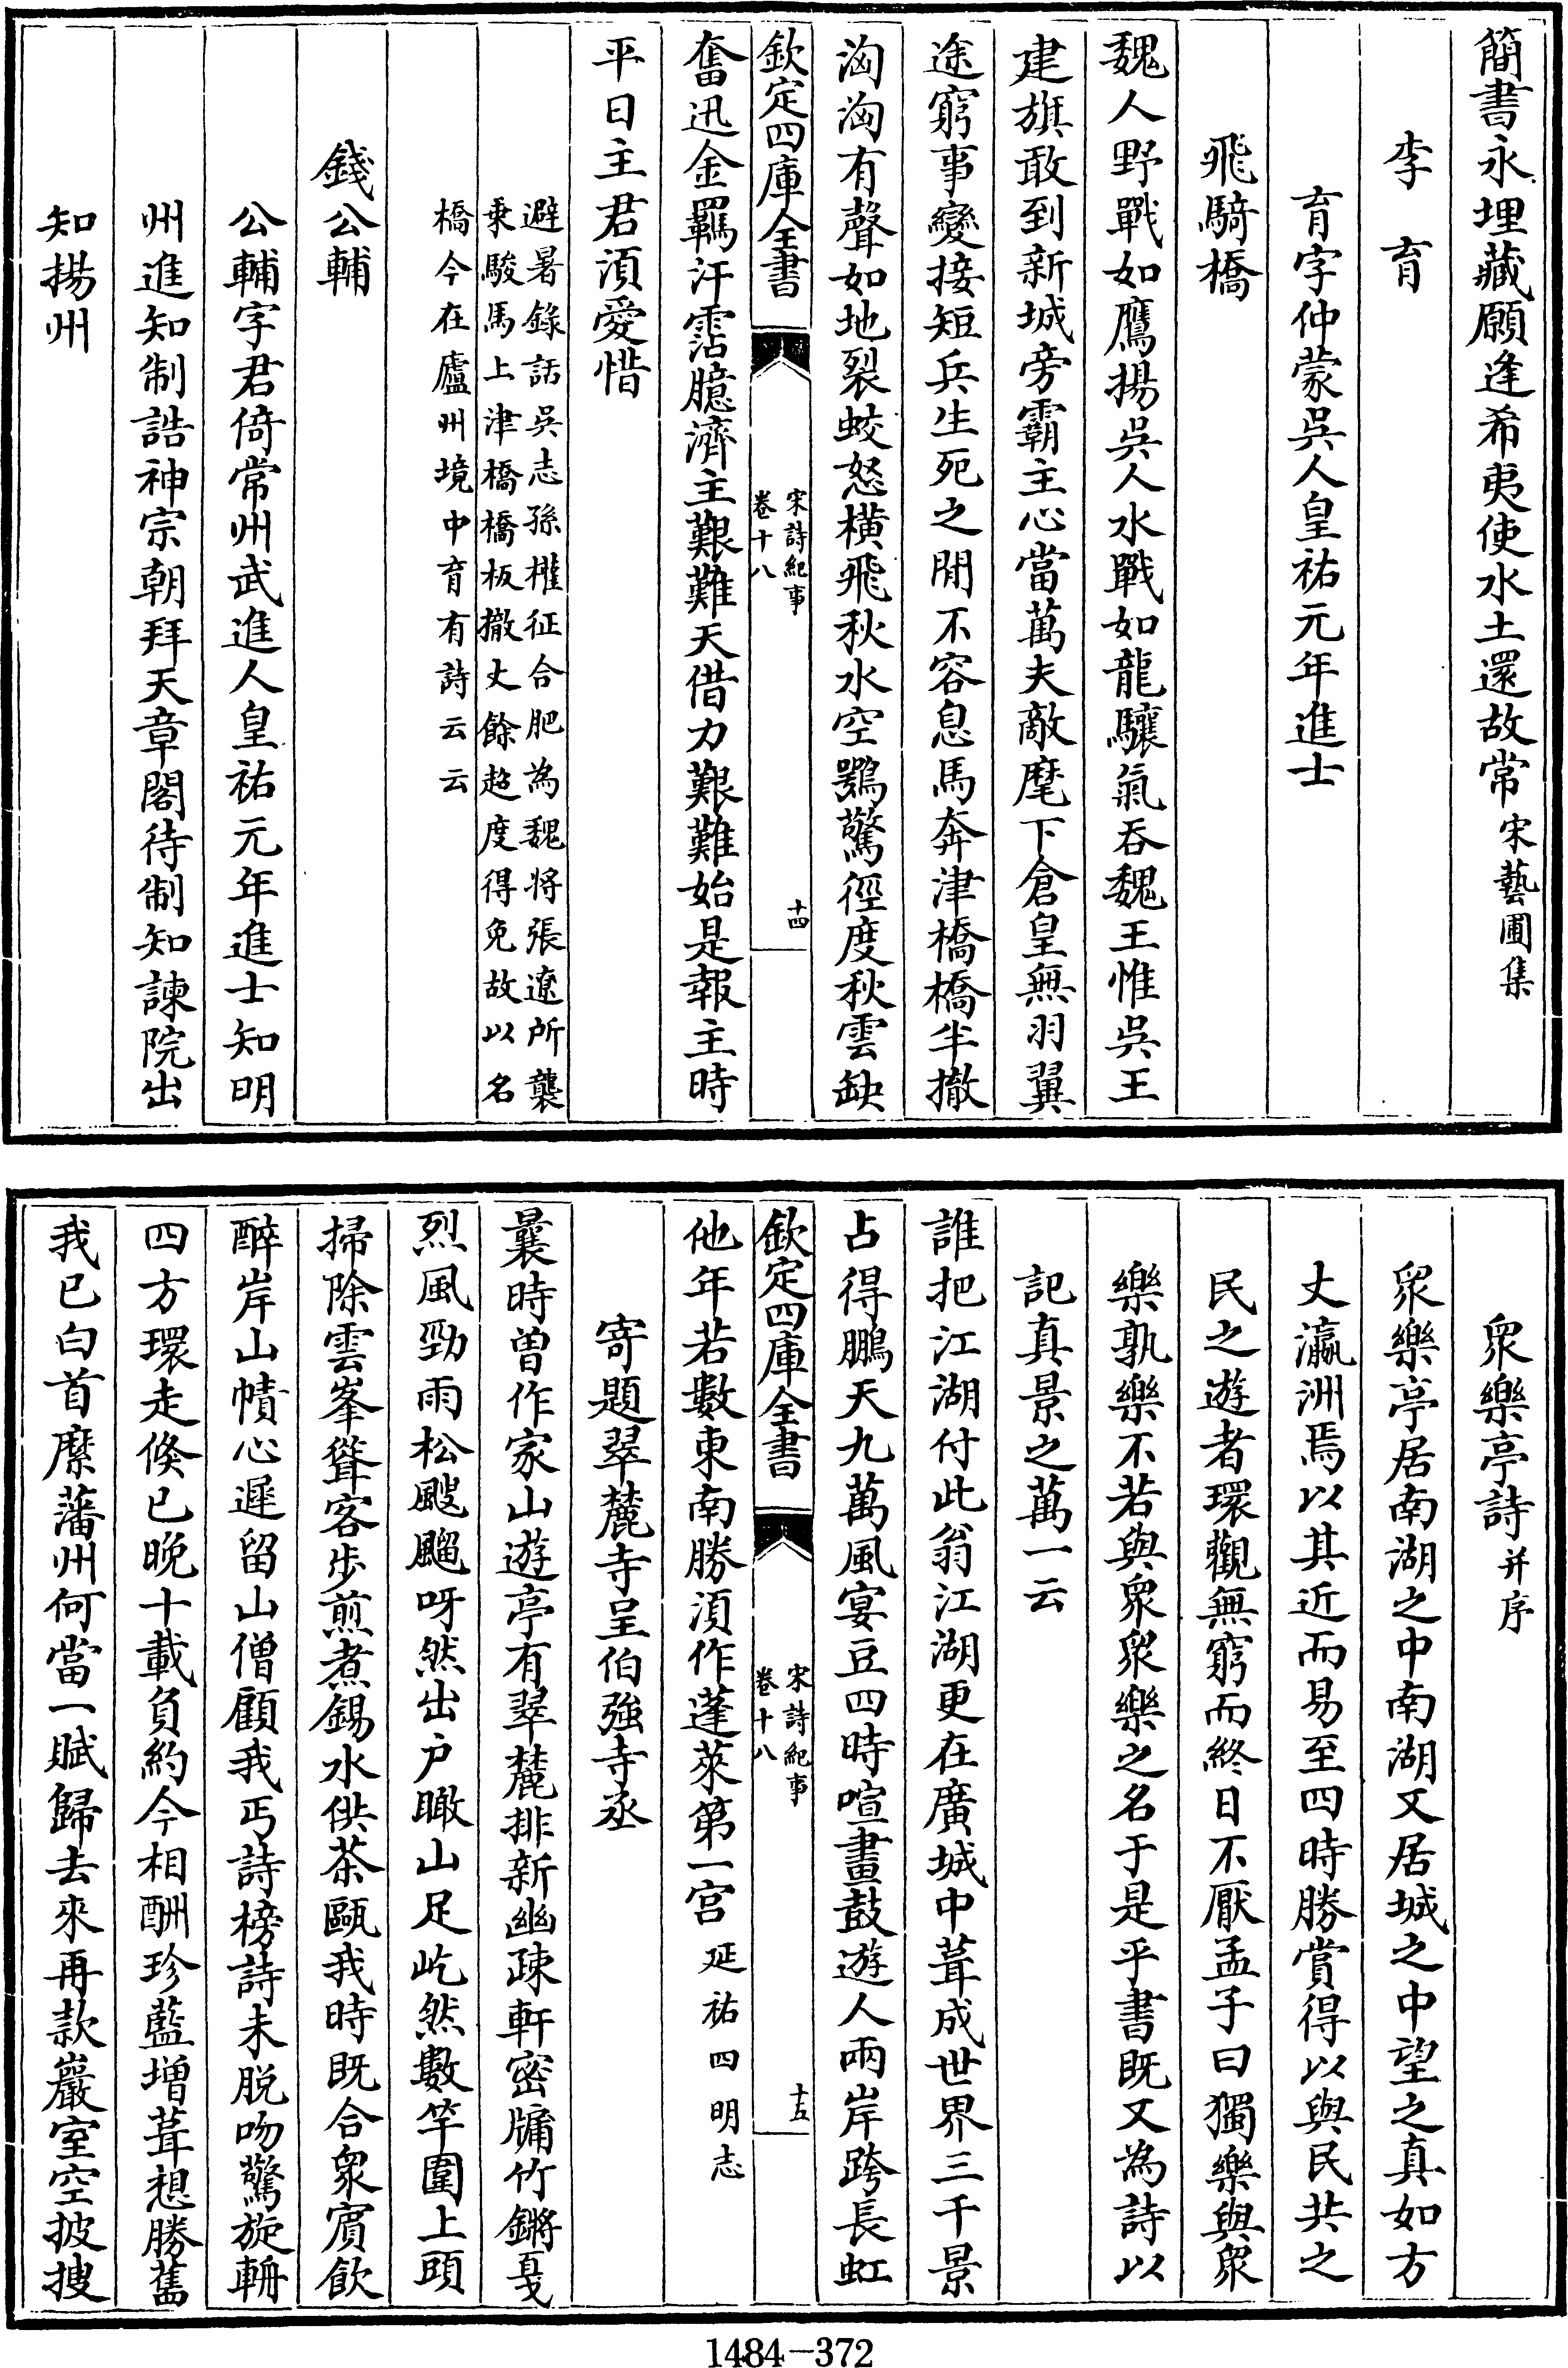 簡書永埋藏願逢希夷使水土還故常宋藝圃集
李育
育字仲蒙吳人皇祐元年進士
飛騎橋
魏人野戰如鷹揚吳人水戰如龍驤氣吞魏王惟吳王
建旗敢到新城旁霸主心當萬夫敵麾下倉皇無羽翼
途窮事變接短兵生死之間不容息馬奔津橋橋半撤
洶洶有聲如地裂蛟怒橫飛秋水空鶚驚徑度秋雲缺
欽定四庫全書
宋詩紀事
卷十八
十四
奮迅金羈汗霑臆濟主艱難天借力艱難始是報主時
平日主君須愛惜
避暑錄話吳志孫權征合肥為魏將張遼所襲
乗駿馬上津橋橋板撤丈餘超度得免故以名
橋今在廬州境中育有詩云云
錢公輔
公輔字君倚常州武進人皇祐元年進士知明
州進知制誥神宗朝拜天章閣待制知諫院出
知揚州
衆樂亭詩并序
衆樂亭居南湖之中南湖又居城之中望之真如方
丈瀛洲焉以其近而易至四時勝賞得以與民共之
民之遊者環觀無窮而終日不厭孟子曰獨樂與衆
樂孰樂不若與衆衆樂之名于是乎書既又為詩以
記真景之萬一云
誰把江湖付此翁江湖更在廣城中葺成世界三千景
占得鵬天九萬風宴豆四時喧畫鼓遊人兩岸跨長虹
欽定四庫全書
宋詩紀事
卷十八
十五
他年若數東南勝須作蓬萊第一宫延祐四明志
寄題翠麓寺呈伯強寺丞
曩時曽作家山遊亭有翠麓排新幽疎軒密牖竹鏘戛
烈風勁雨松颼飀呀然出户瞰山足屹然數竿圍上頭
掃除雲峯聳客步煎煮錫水供茶甌我時既合衆賓飲
醉岸山幘心遲留山僧顧我丐詩榜詩未脱吻驚旋輈
四方環走倐已晚十載負約今相酬珍藍增葺想勝舊
我已白首縻藩州何當一賦歸去來再款巖室空披搜
1484-372